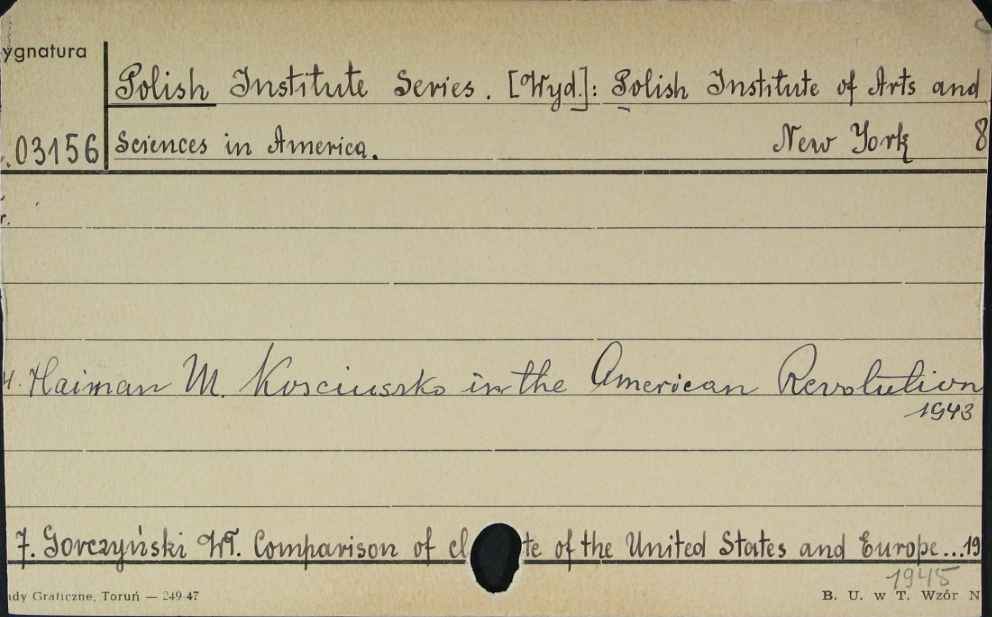 ygnatura
Polish Institute Series. [Wyd.]: Polish Institute of Arts and
.03156 Sciences in America. New York 8
r.
4. Haiman M. Kosciuszko in the American Revolution
1943
7. Gorczyński Wł. Comparison of cl te of the United States and Europe...19
1945
ady Graficzne, Toruń — 249 47 B. U. w T. Wzór N